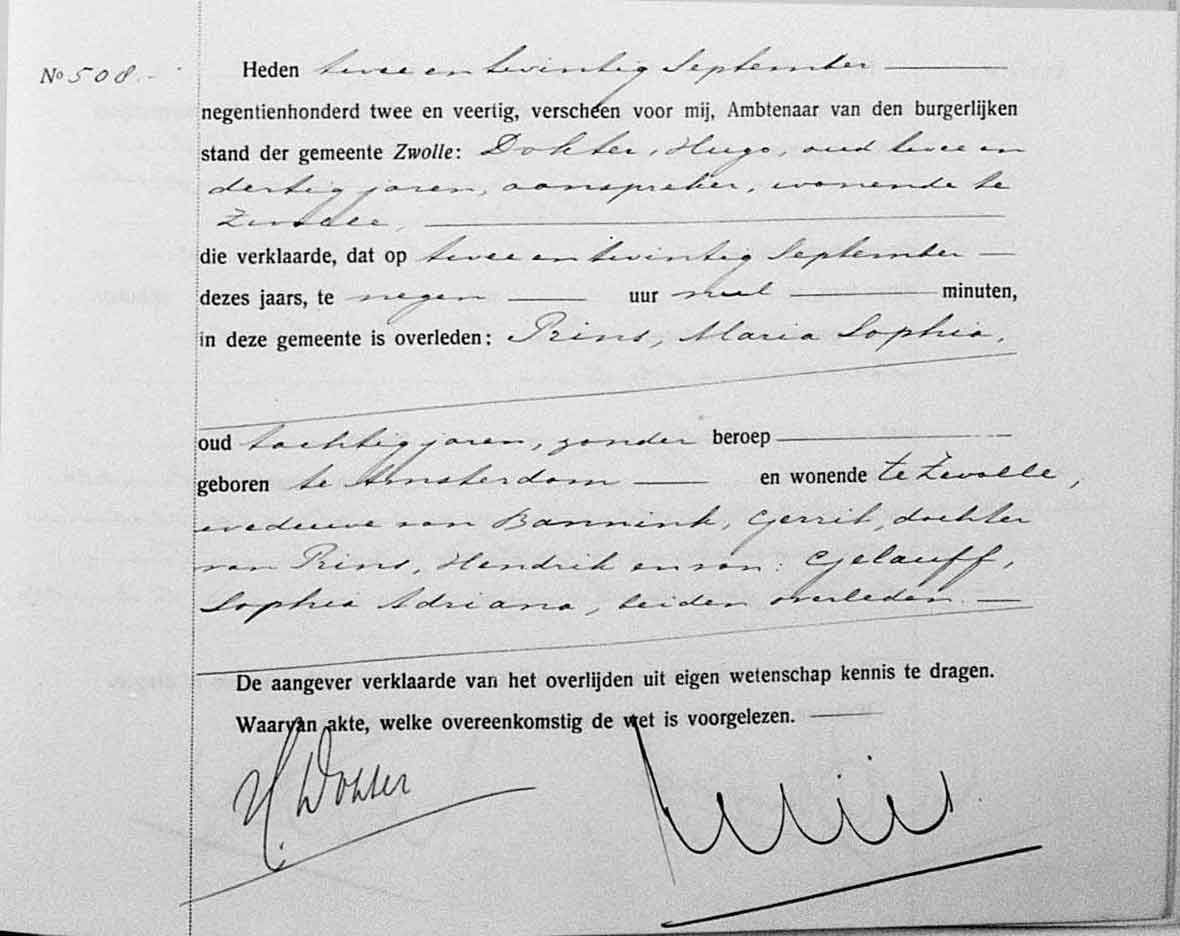 No 508.-
Heden twee en twintig September
negentienhonderd twee en veertig, verscheen voor mij, Ambtenaar van den burgerlijken
stand der gemeente Zwolle: Dokter, Hugo, oud twee en
dertig jaren, aanspreker, wonende te
Zwolle,
die verklaarde, dat op twee en twintig September
dezes jaars, te negen uur nul minuten,
in deze gemeente is overleden: Prins, Maria Sophia,
oud tachtig jaren, zonder beroep
geboren te Amsterdam en wonende te Zwolle,
weduwe van Bannink, Gerrit, dochter
van Prins, Hendrik en van: Gelauff,
Sophia Adriana, beiden overleden.
De aangever verklaarde van het overlijden uit eigen wetenschap kennis te dragen.
Waarvan akte, welke overeenkomstig de wet is voorgelezen.
H. Dokter